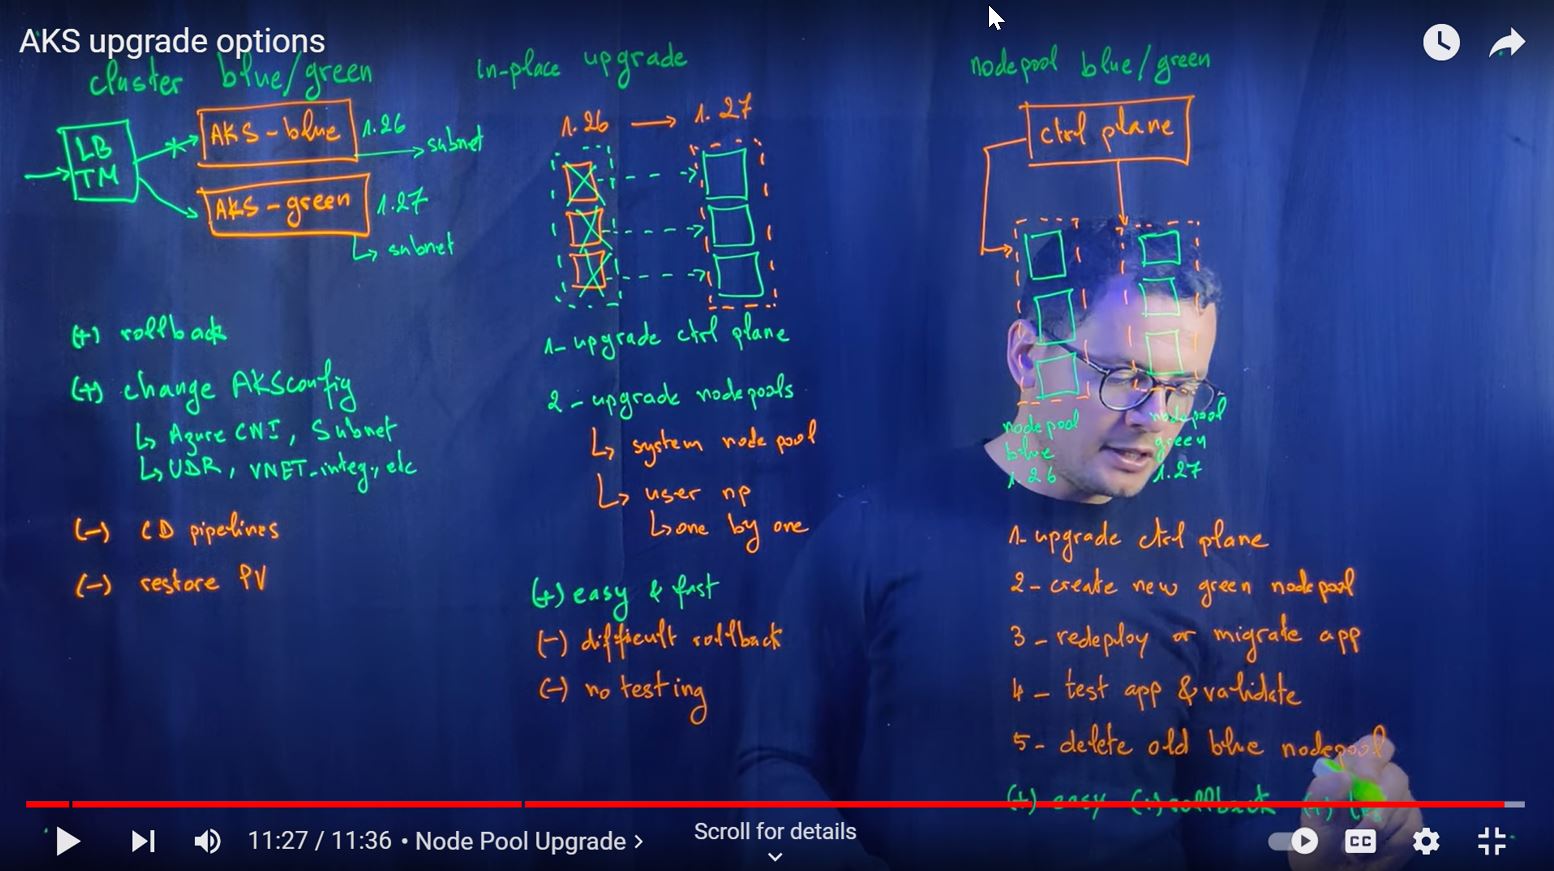 AKS upgrade options
cluster blue/green
LB
TM
AKS-blue
1.26
subnet
AKS-green
1.27
subnet
(+) rollback
(+) change AKS config
↳ Azure CNI, Subnet
↳ UDR, VNET_integ, etc
(-) CD pipelines
(-) restore PV
in-place upgrade
1.26 → 1.27
1- upgrade ctrl plane
2- upgrade nodepools
↳ system node pool
↳ user np
↳ one by one
(+) easy & fast
(-) difficult rollback
(-) no testing
nodepool blue/green
ctrl plane
nodepool
blue
1.26
nodepool
green
1.27
1- upgrade ctrl plane
2- create new green nodepool
3- redeploy or migrate app
4- test app & validate
5- delete old blue nodepool
(+) easy (+) rollback (+)
11:27 / 11:36 • Node Pool Upgrade >
Scroll for details
CC